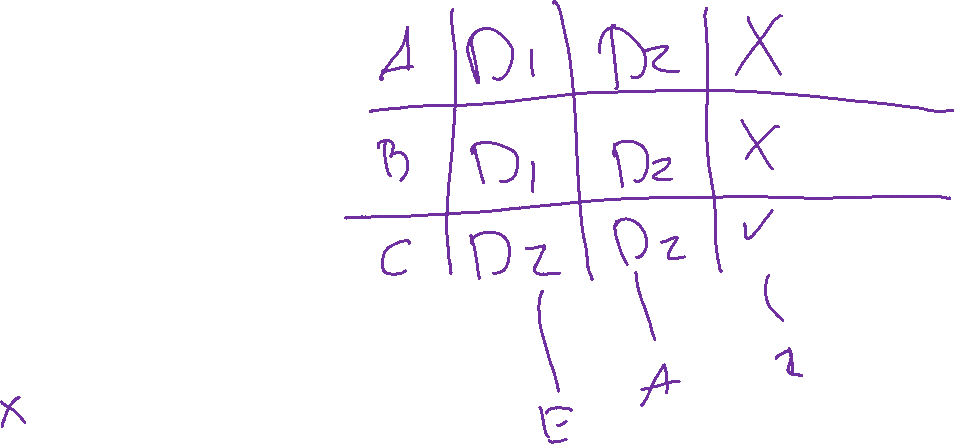 A D1 D2 X
B D1 D2 X
C D2 D2 ✓
E A 1
x